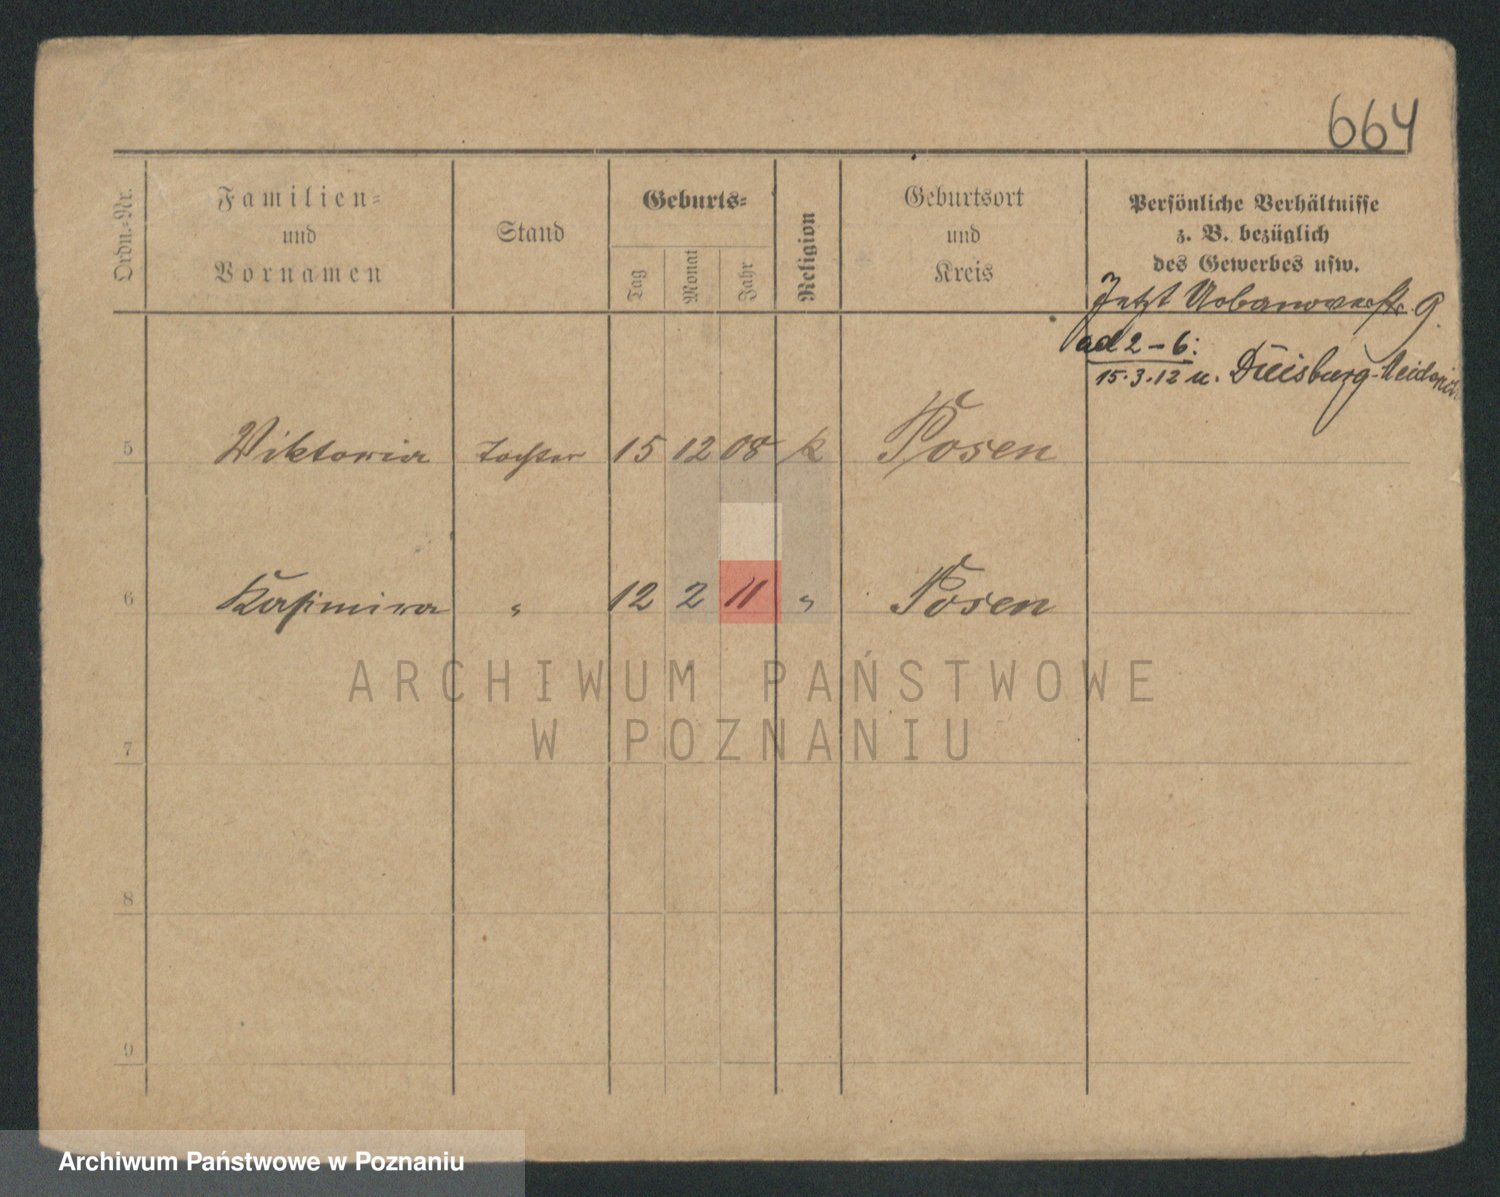 664
Ordn.-Nr.
Familien-
und
Vornamen
Stand
Geburts-
Tag
Monat
Jahr
Religion
Geburtsort
und
Kreis
Persönliche Verhältnisse
z. B. bezüglich
des Gewerbes usw.
Jetzt Urbanowerstr. 9.
ad 2-6:
15.3.12 u. Duisburg-Meiderich
5 Viktoria Tochter 15 12 08 k Posen
6 Kasimira " 12 2 11 " Posen
ARCHIWUM PAŃSTWOWE
W POZNANIU
7
8
9
Archiwum Państwowe w Poznaniu